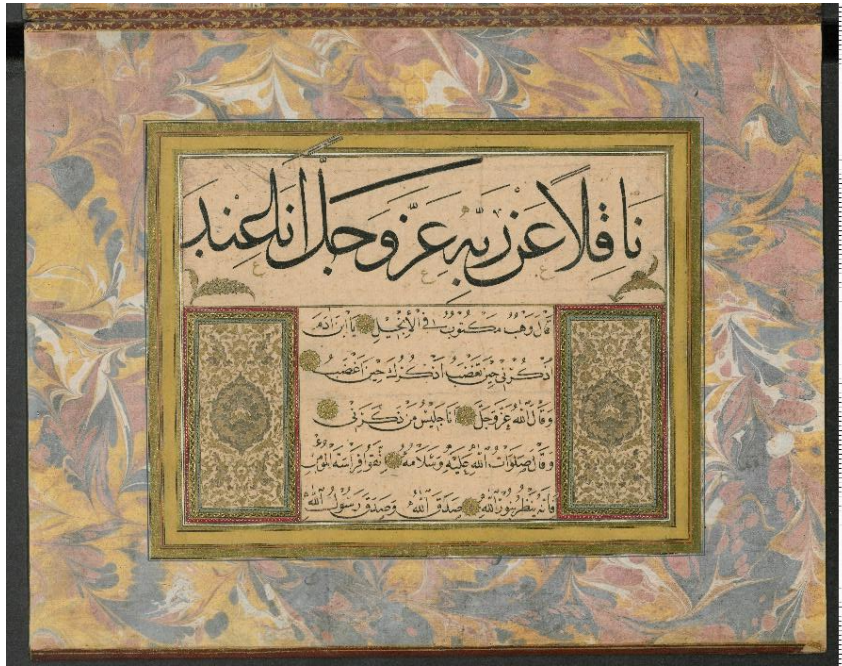 نَاقِلًا عَنْ رَبِّهِ عَزَّ وَجَلَّ انَا عِنْدَ
قَالَ وَهْبٌ مَكْتُوبٌ فِي الْأِنْجِيلِ يَا ابْنَ اٰدَمَ
اُذْكُرْنِي حِينَ تَغْضَبُ اَذْكُرْكَ حِينَ اَغْضَبُ
وَقَالَ اللّٰهُ عَزَّ وَجَلَّ اَنَا جَلِيسُ مَنْ ذَكَرَنِي
وَقَالَ صَلَوَاتُ اللّٰهِ عَلَيْهِ وَسَلَامُهُ اِتَّقُوا فِرَاسَةَ الْمُؤْمِنِ
فَاِنَّهُ يَنْظُرُ بِنُورِ اللّٰهِ صَدَقَ اللّٰهُ وَصَدَقَ رَسُولُ اللّٰهِ